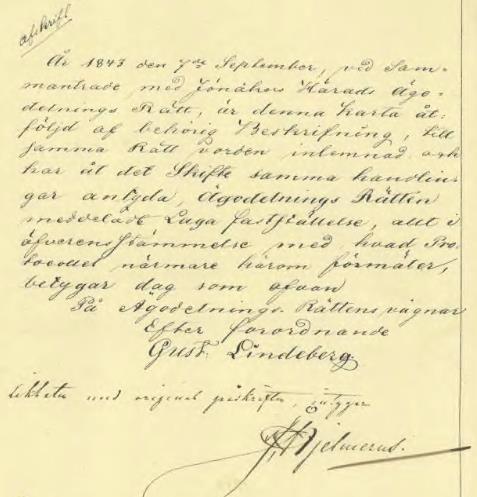 afskrift
År 1843 den 7de September, vid Sam-
manträde med Jönåkers Härads Ägo-
delnings Rätt, är denna Karta åt-
följd af behörig Beskrifning, till
samma Rätt vorden inlemnad och
har åt det Skifte samma handlin-
gar antyda, Ägodelnings Rätten
meddeladt Laga fastställelse, allt i
öfverensstämmelse med hvad Pro-
tocollet närmare härom förmäler,
betygar dag som ofvan
På Ägodelnings-Rättens vägnar
Efter förordnande
Gust. Lindeberg.
likheten med original påskriften, intygar
Hjelmerus.